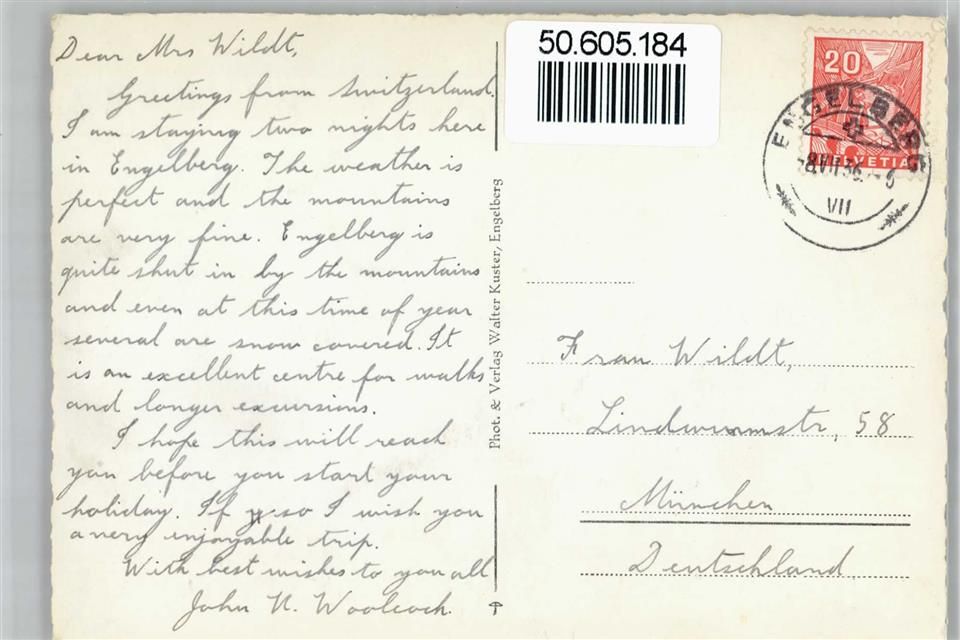 Dear Mrs Wildt,
Greetings from Switzerland.
I am staying two nights here
in Engelberg. The weather is
perfect and the mountains
are very fine. Engelberg is
quite shut in by the mountains
and even at this time of year
several are snow covered. It
is an excellent centre for walks
and longer excursions.
I hope this will reach
you before you start your
holiday. If so I wish you
a very enjoyable trip.
With best wishes to you all
John N. Woolcock.
Phot. & Verlag Walter Kuster, Engelberg
50.605.184
20
HELVETIA
ENGELBERG
8.VII.36
VII
Frau Wildt,
Lindwurmstr, 58
München
Deutschland